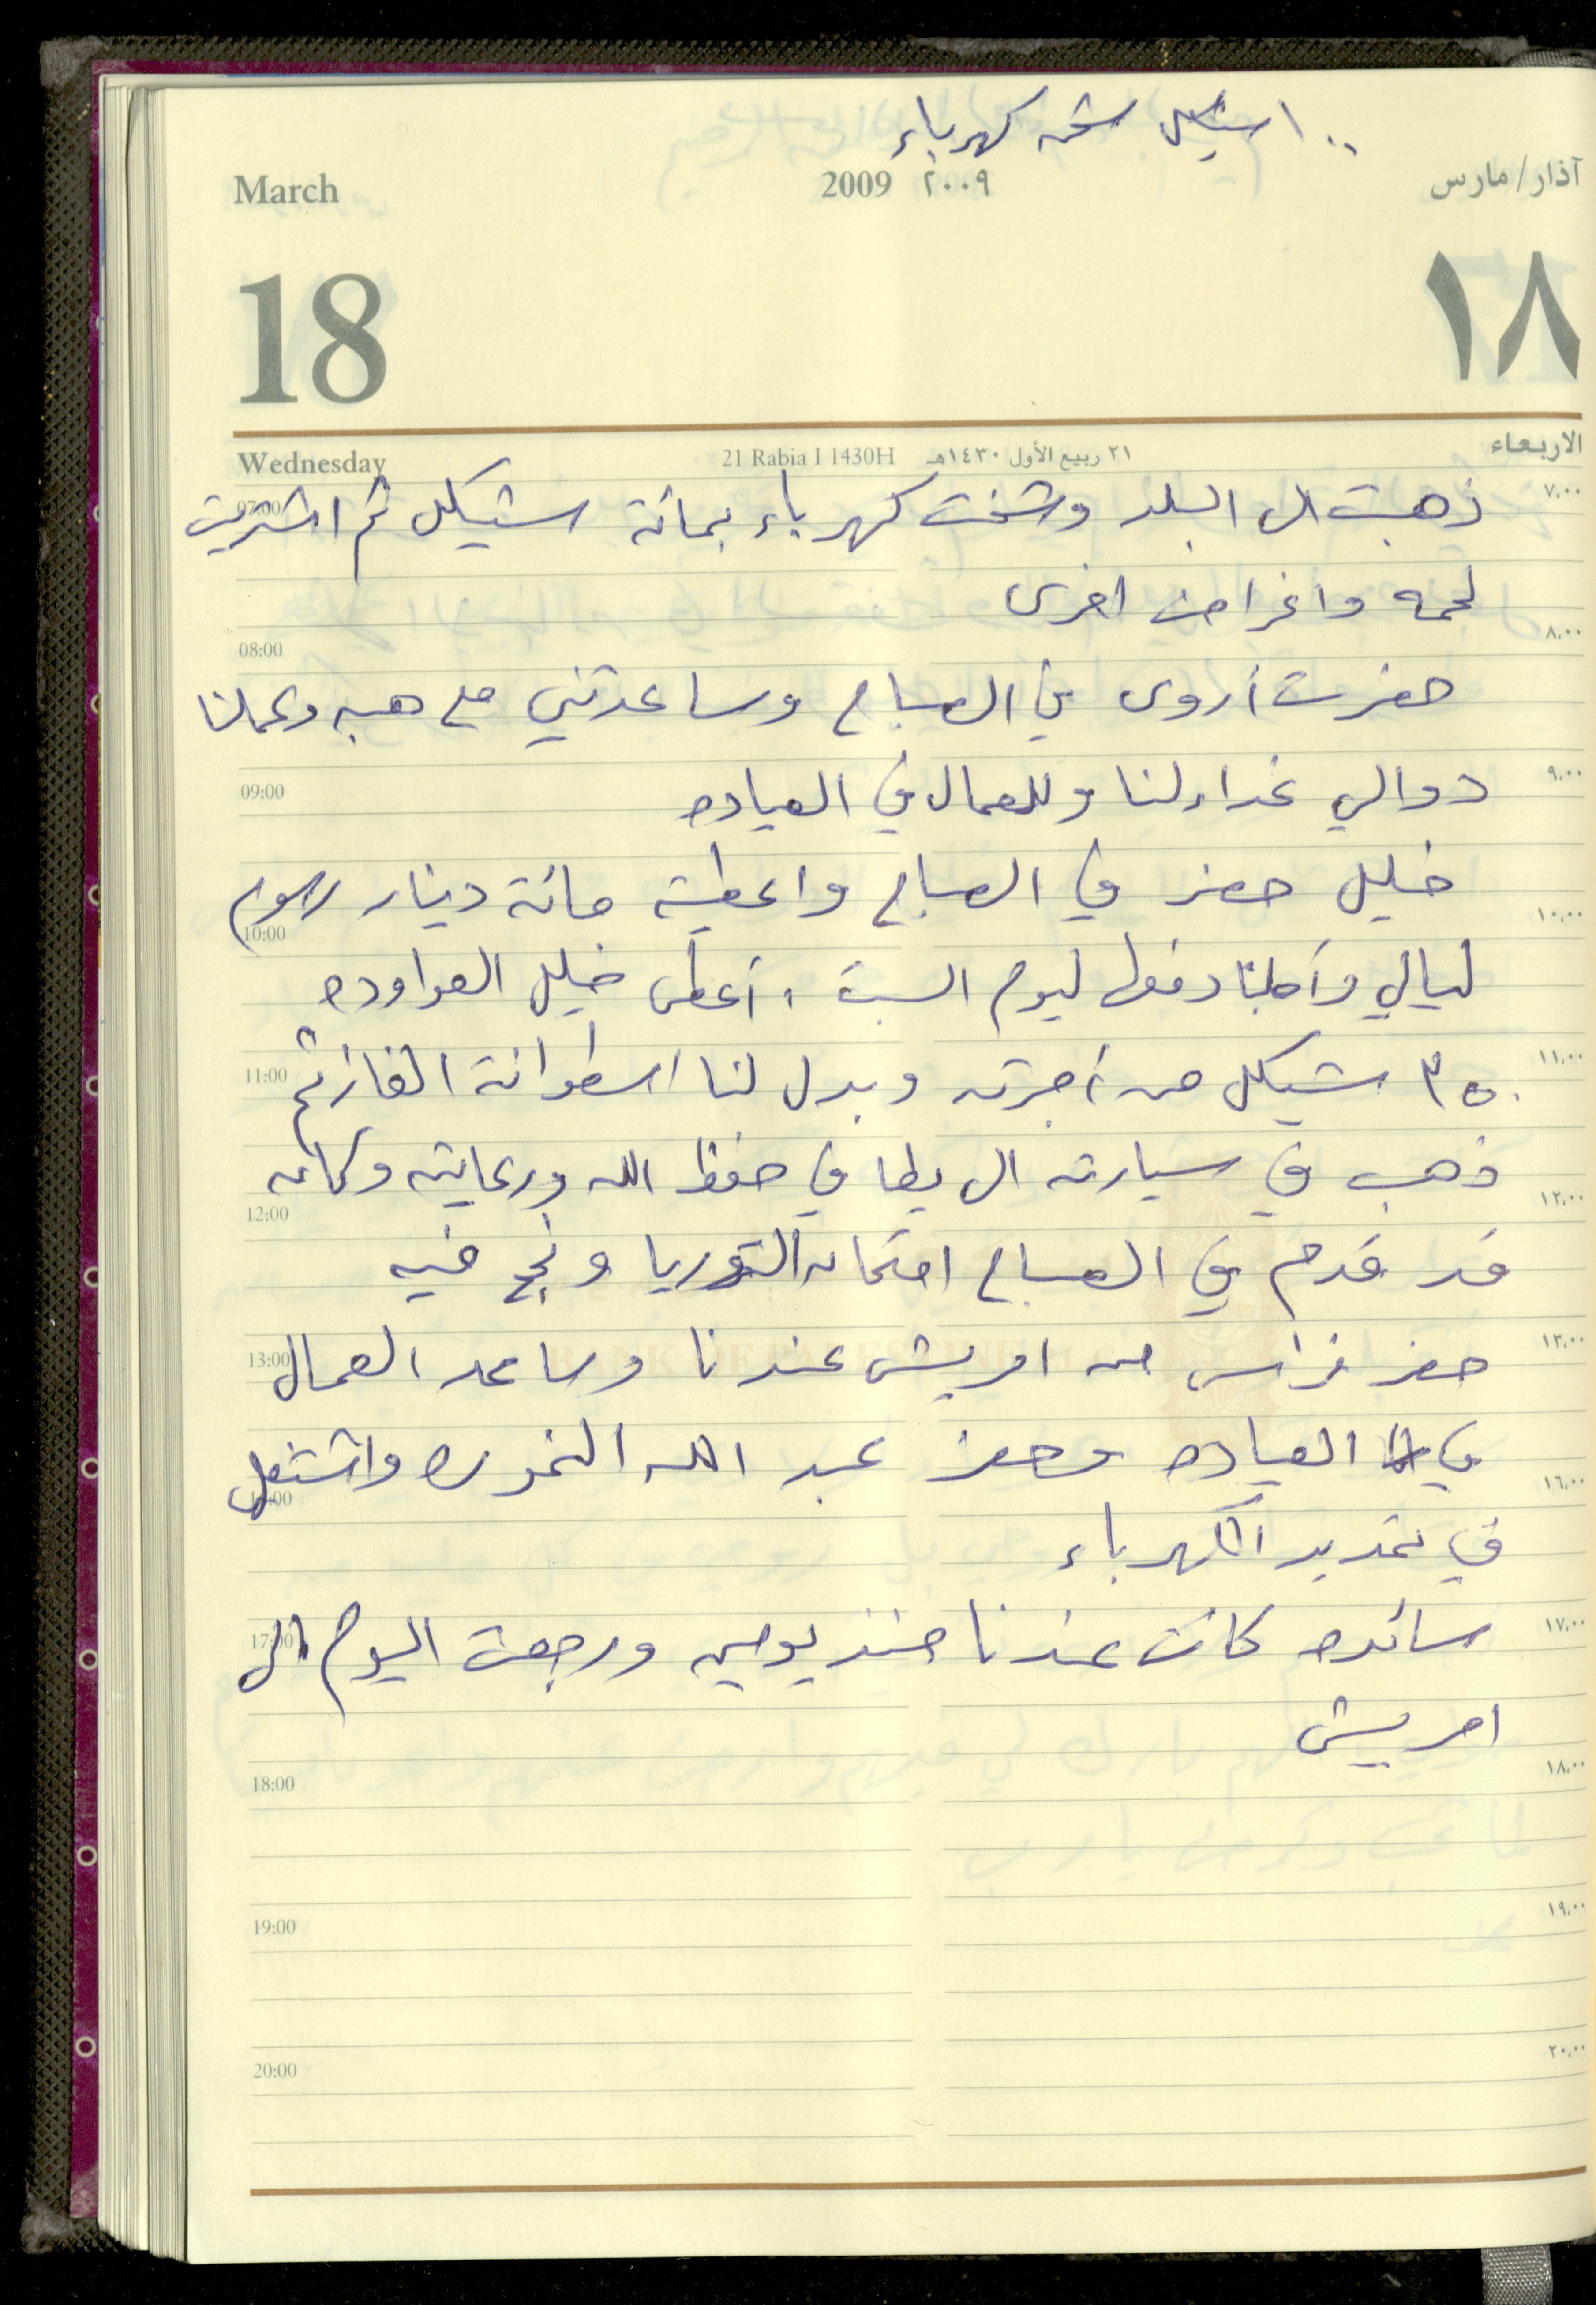 ١٠٠ شيكل شحن كهرباء
March 2009 ٢٠٠٩ آذار/مارس
18 ١٨
Wednesday 21 Rabia I 1430H ٢١ ربيع الأول ١٤٣٠هـ الاربعاء
07:00 ٧،٠٠
ذهبت الى البلد وشحنت كهرباء بمائة شيكل ثم اشتريت
لحمه واغراض اخرى
08:00 ٨،٠٠
حضرت أروى في الصباح وساعدتني مع هبه وعملنا
09:00 ٩،٠٠
دوالي غداء لنا وللعمال في العياده
خليل حضر في الصباح واعطيته مائة دينار رسوم
10:00 ١٠،٠٠
ليالي وأجلنا دفعها ليوم السبت ، أعطى خليل العواوده
11:00 ١١،٠٠
٣٥٠ شيكل من أجرته وبدل لنا اسطوانة الغاز ثم
ذهب في سيارته الى يطا في حفظ الله ورعايته وكان
12:00 ١٢،٠٠
قد قدم في الصباح امتحان التؤريا ونجح فيه
13:00 ١٣،٠٠
حضر فراس من امريش عندنا وساعد العمال
في العياده وحضر عبد الله النموره واشتغل
١٦،٠٠
في تمديد الكهرباء
سائده كانت عندنا منذ يومين ورجعت اليوم الى
17:00 ١٧،٠٠
امريش
18:00 ١٨،٠٠
19:00 ١٩،٠٠
20:00 ٢٠،٠٠